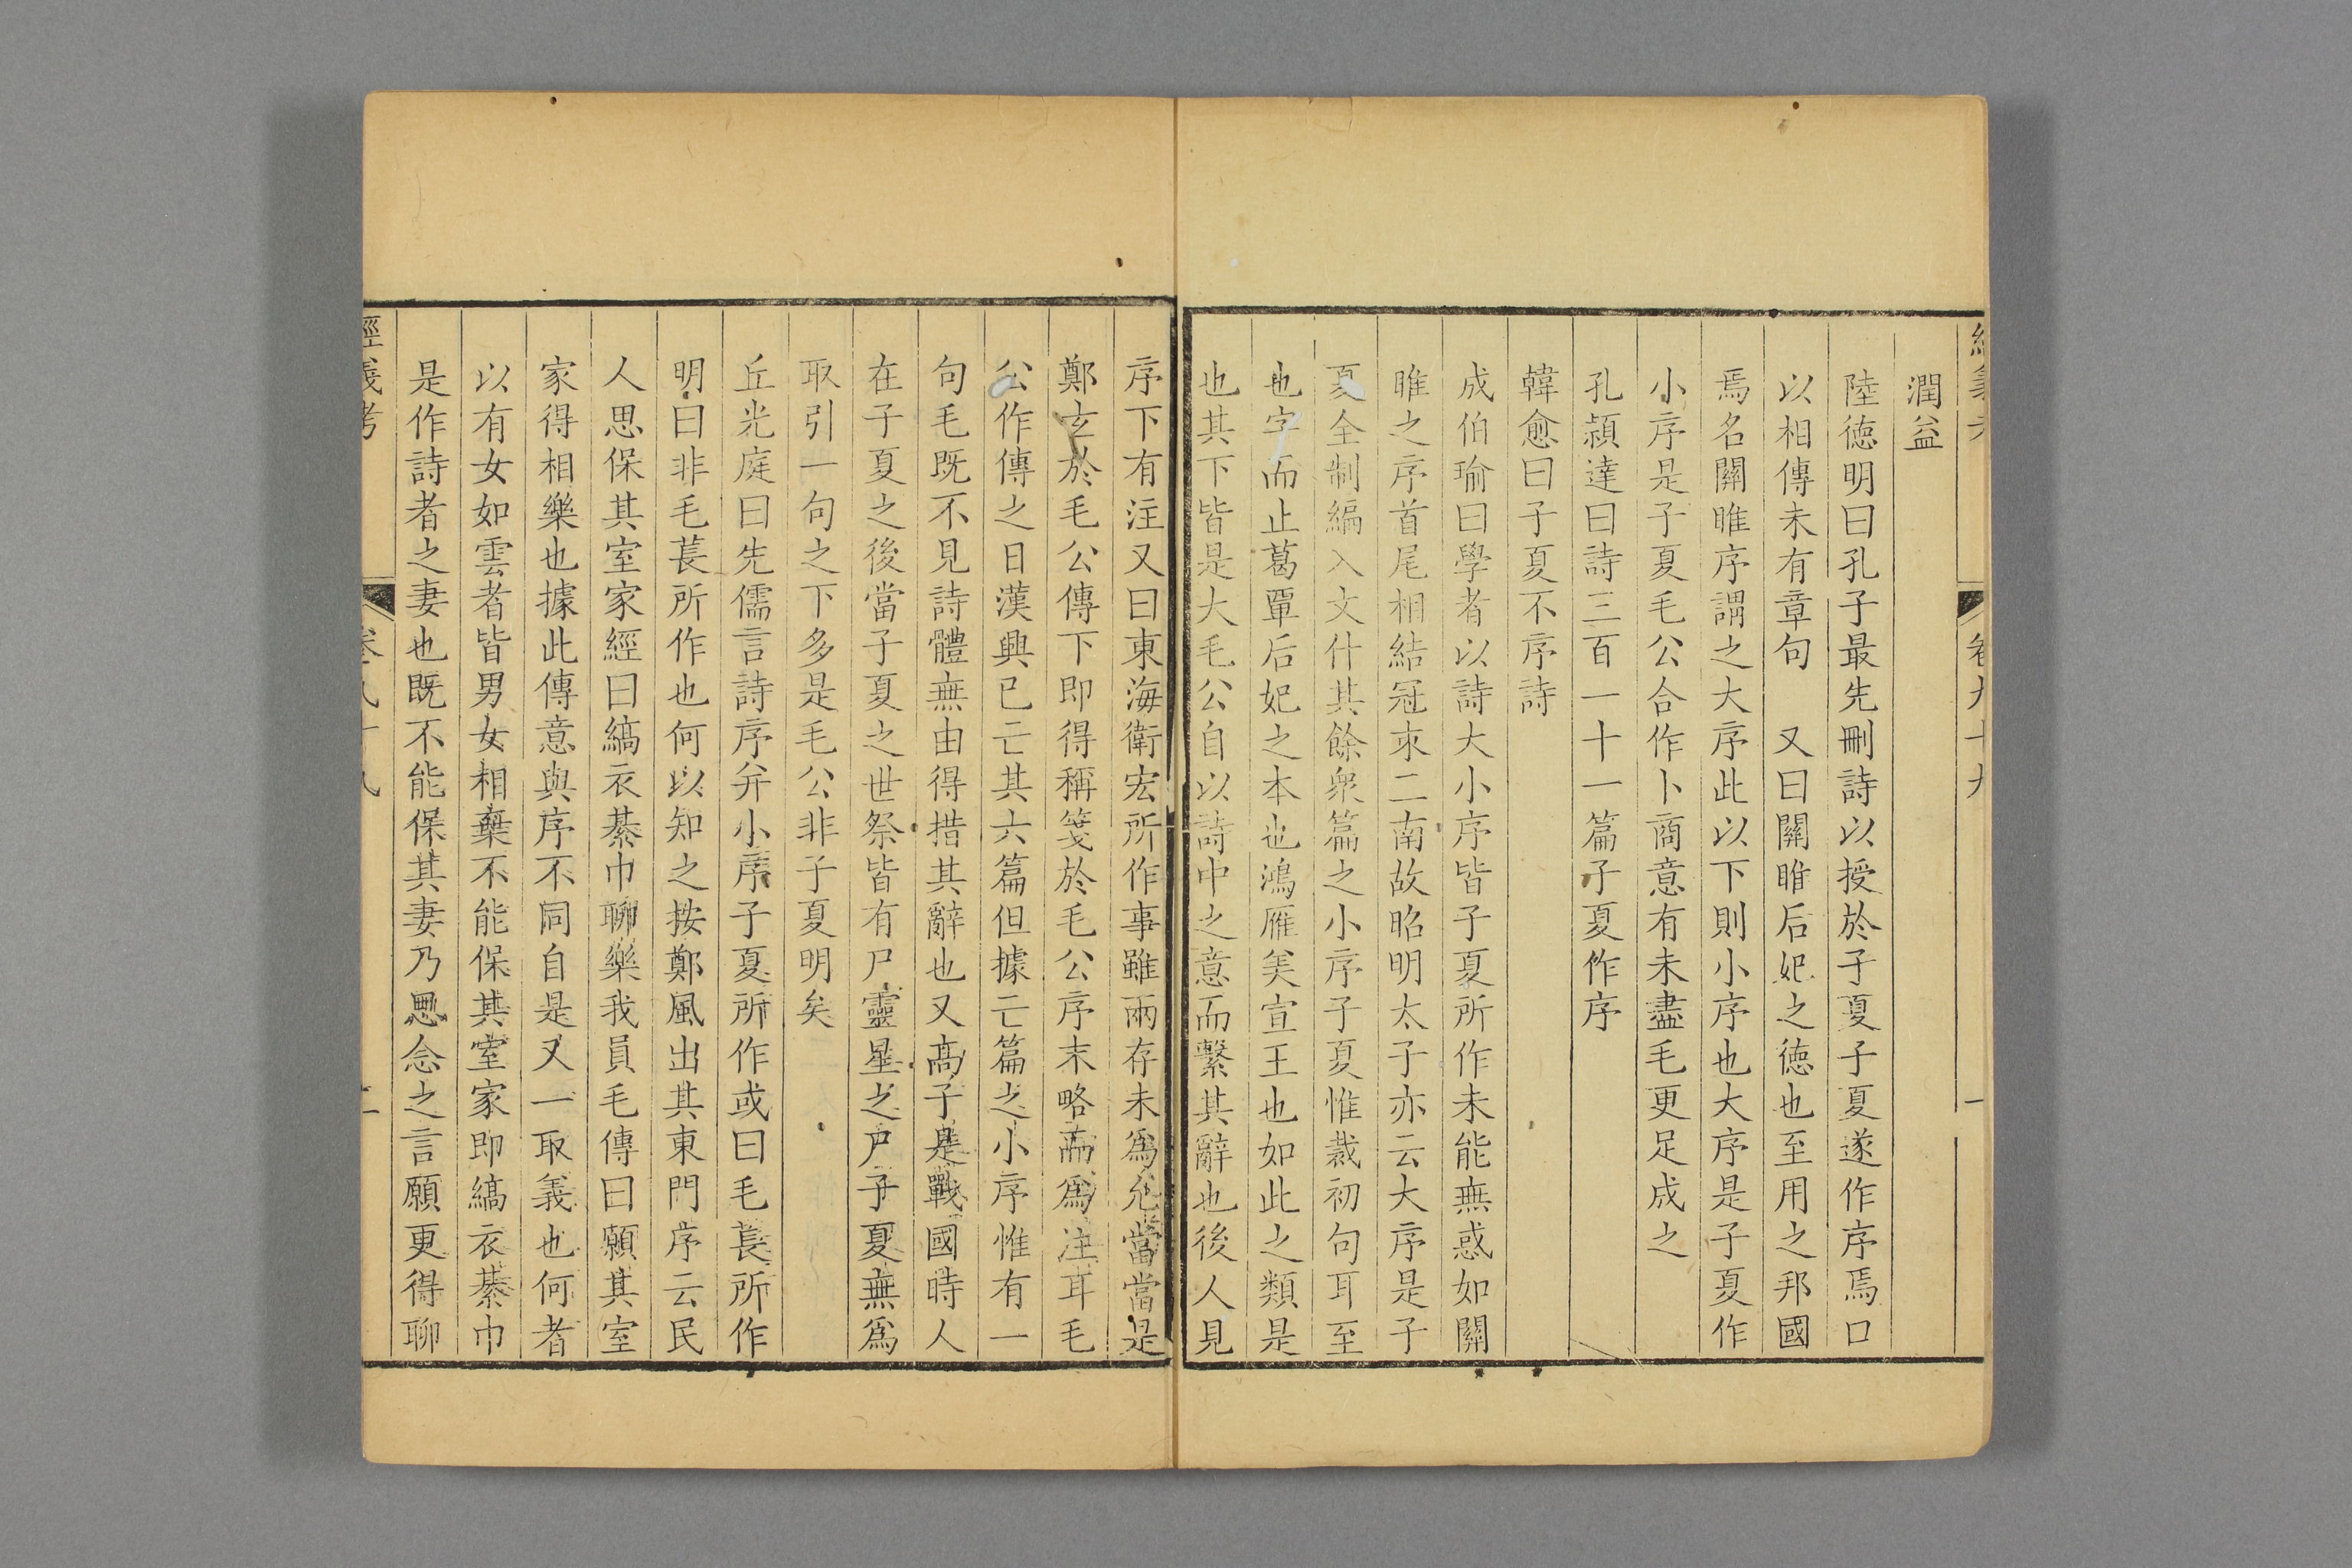 經義考 卷九十九 一
潤益
陸德明曰孔子最先刪詩以授於子夏子夏遂作序焉口
以相傳未有章句 又曰關雎后妃之德也至用之邦國
焉名關雎序謂之大序此以下則小序也大序是子夏作
小序是子夏毛公合作卜商意有未盡毛更足成之
孔穎達曰詩三百一十一篇子夏作序
韓愈曰子夏不序詩
成伯瑜曰學者以詩大小序皆子夏所作未能無惑如關
雎之序首尾相結冠束二南故昭明太子亦云大序是子
夏全制編入文什其餘衆篇之小序子夏惟裁初句耳至
也字而止葛覃后妃之本也鴻雁美宣王也如此之類是
也其下皆是大毛公自以詩中之意而繫其辭也後人見
序下有注又曰東海衛宏所作事雖兩存未爲允當當是
鄭玄於毛公傳下即得稱箋於毛公序末略而爲注耳毛
公作傳之日漢興已亡其六篇但據亡篇之小序惟有一
句毛既不見詩體無由得措其辭也又高子是戰國時人
在子夏之後當子夏之世祭皆有尸靈星之尸子夏無爲
取引一句之下多是毛公非子夏明矣
丘光庭曰先儒言詩序并小序子夏所作或曰毛萇所作
明曰非毛萇所作也何以知之按鄭風出其東門序云民
人思保其室家經曰縞衣綦巾聊樂我員毛傳曰願其室
家得相樂也據此傳意與序不同自是又一取義也何者
以有女如雲者皆男女相棄不能保其室家即縞衣綦巾
是作詩者之妻也既不能保其妻乃思念之言願更得聊
經義考 卷九十九 二